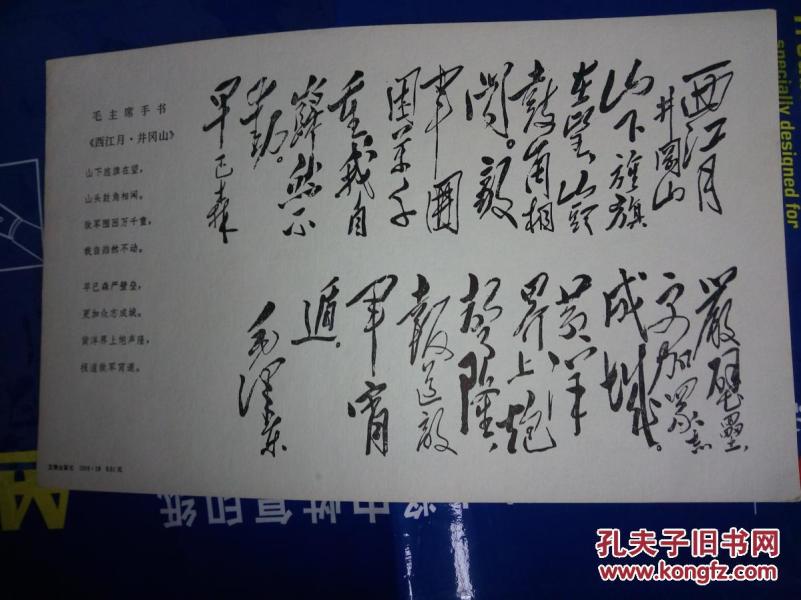 毛主席手书
《西江月·井冈山》
山下旌旗在望，
山头鼓角相闻。
敌军围困万千重，
我自岿然不动。
早已森严壁垒，
更加众志成城。
黄洋界上炮声隆，
报道敌军宵遁。
西江月
井岡山
山下旌旗
在望，山頭
鼓角相
闻。敵
軍圍
困万千
重我自
巋然不
動。
早已森
嚴壁壘，
更加眾志
成城。
黃洋
界上炮
声隆，
報道敵
軍宵
遁。
毛澤東
文物出版社
specially designed for
复印纸
孔夫子旧书网
www.kongfz.com